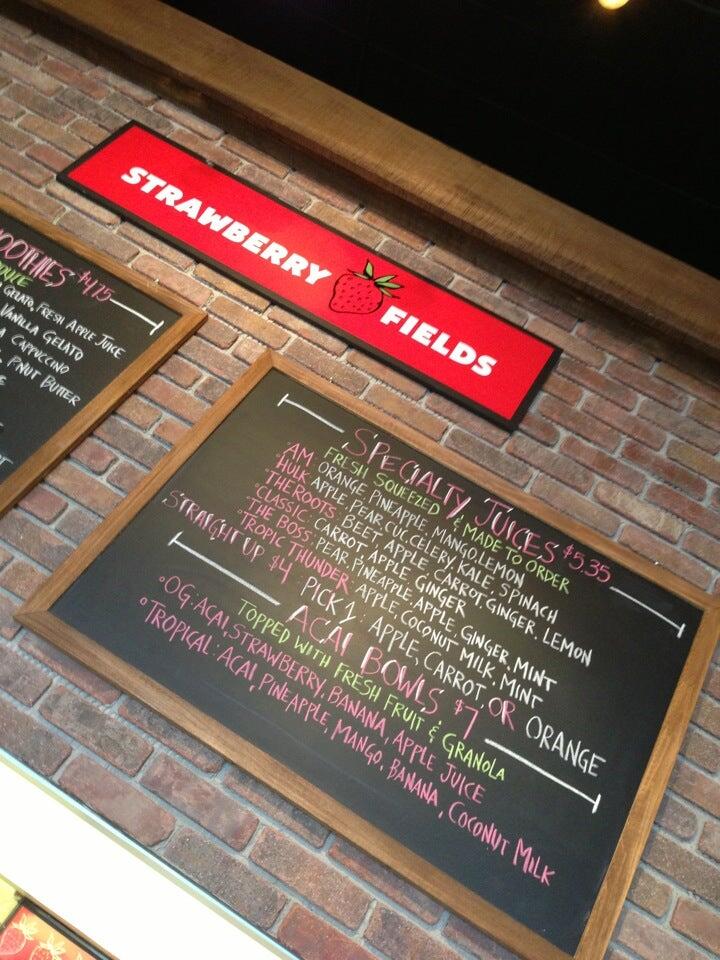 STRAWBERRY FIELDS
SMOOTHIES $4.75
GELATO, FRESH APPLE JUICE
VANILLA GELATO
CAPPUCCINO
P'NUT BUTTER
SPECIALTY JUICES $5.35
FRESH SQUEEZED & MADE TO ORDER
°AM: ORANGE, PINEAPPLE, MANGO, LEMON
°HULK: APPLE, PEAR, CUC, CELERY, KALE, SPINACH
°THE ROOTS: BEET, APPLE, CARROT, GINGER, LEMON
°CLASSIC: CARROT, APPLE, GINGER
°THE BOSS: PEAR, PINEAPPLE, APPLE, GINGER, MINT
°TROPIC THUNDER: APPLE, COCONUT MILK, MINT
STRAIGHT UP $4 : PICK 1 : APPLE, CARROT, OR ORANGE
ACAI BOWLS $7
TOPPED WITH FRESH FRUIT & GRANOLA
°OG: ACAI, STRAWBERRY, BANANA, APPLE JUICE
°TROPICAL: ACAI, PINEAPPLE, MANGO, BANANA, COCONUT MILK